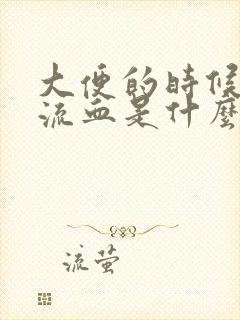 大便的時候
流血是什麼
流萤